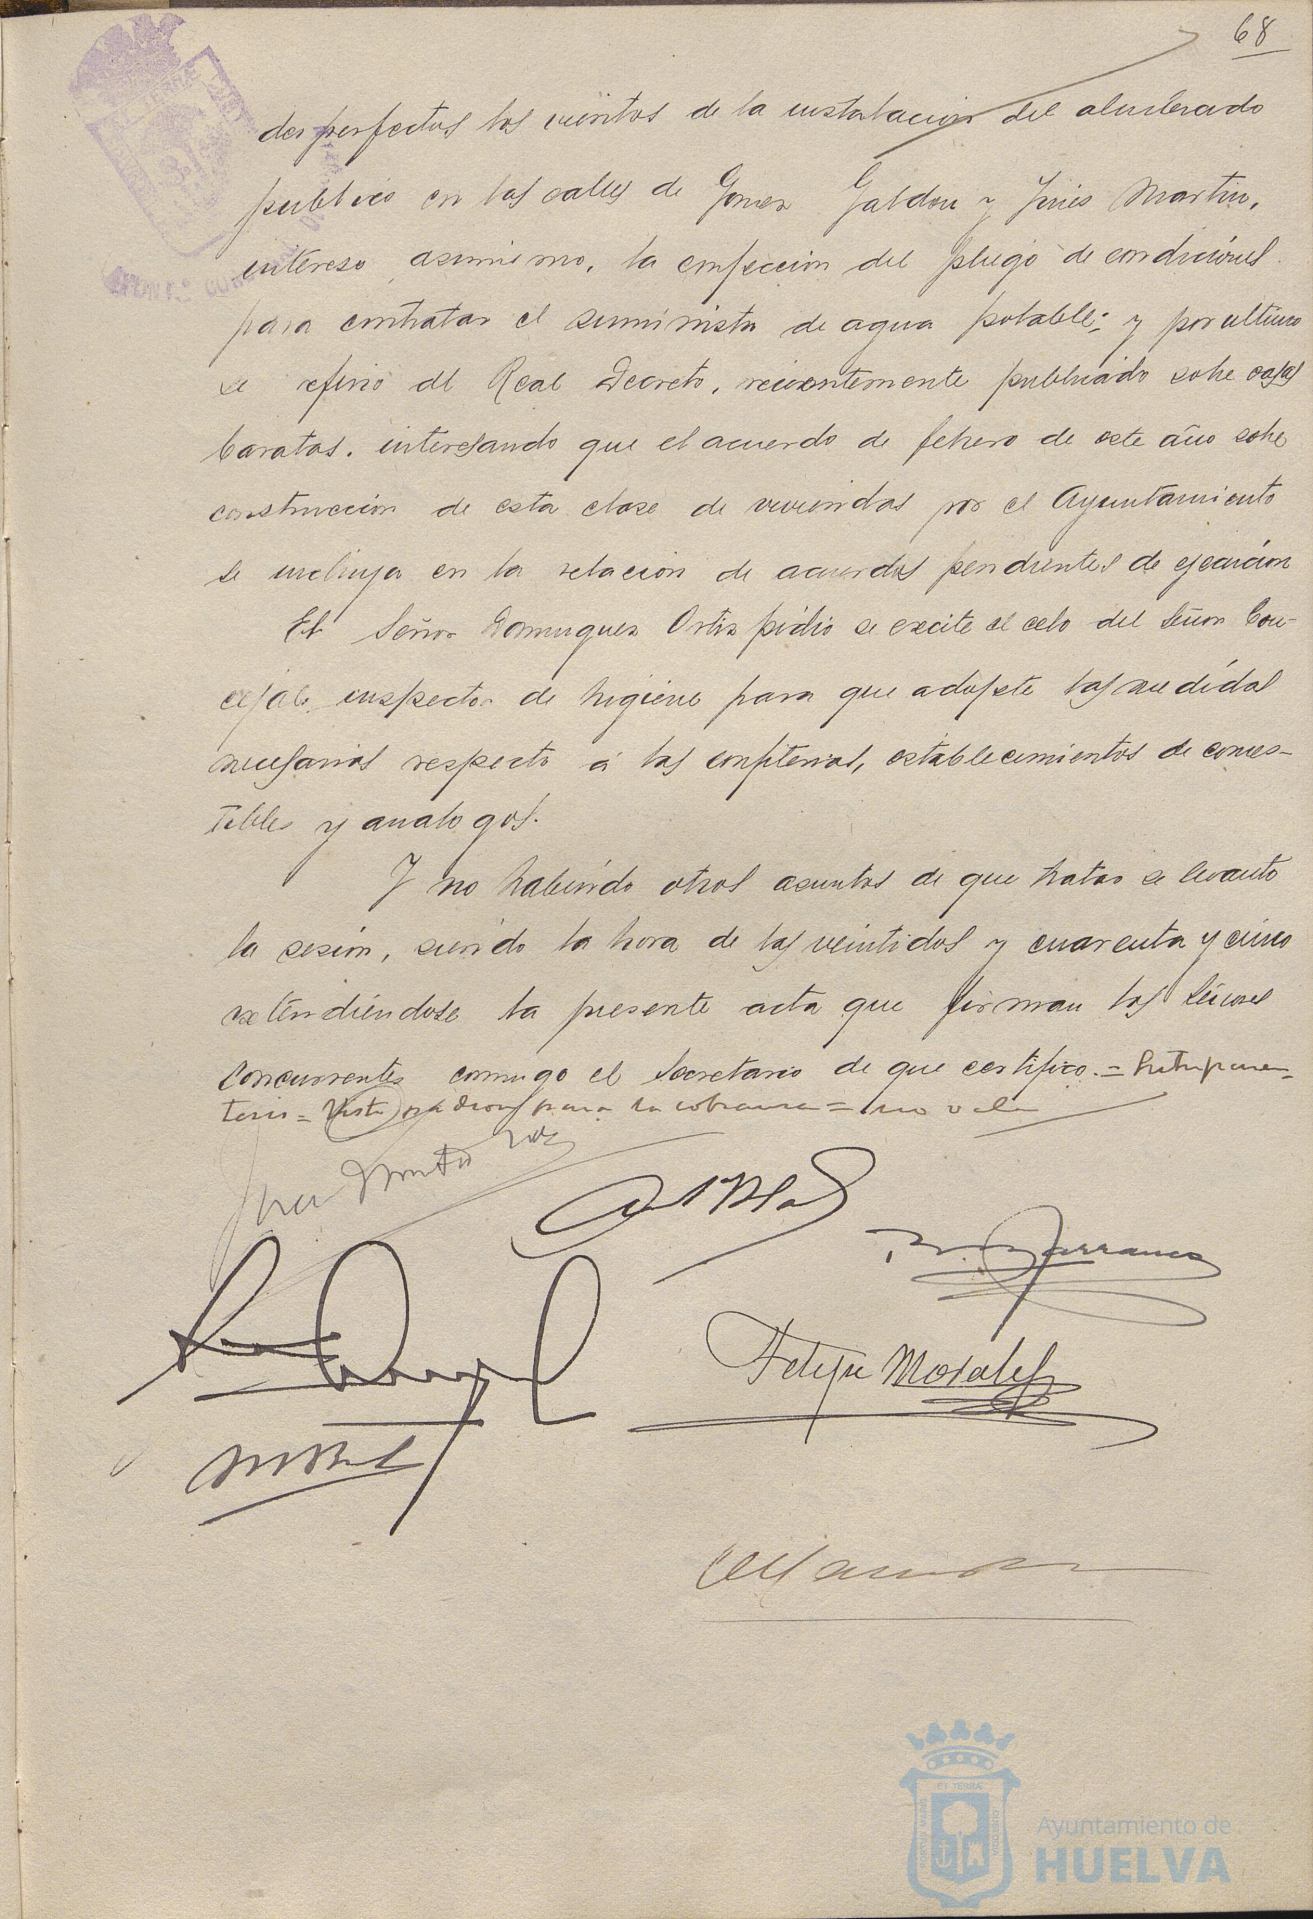 68
desperfectos los vientos de la instalacion del alumbrado
publico en las calles de Gomez Galdon y Gines Martin,
intereso asimismo, la confeccion del pliego de condiciones
para contratar el suministro de agua potable; y por ultimo
se refirio al Real Decreto, recientemente publicado sobre casas
baratas, interesando que el acuerdo de febrero de este año sobre
construccion de esta clase de viviendas por el Ayuntamiento
se incluya en la relacion de acuerdos pendientes de ejecucion
El Señor Dominguez Ortiz pidio se excite el celo del Señor Con-
cejal inspector de higiene para que adopte las medidas
necesarias respecto á las confiterias, establecimientos de comes-
tibles y analogos.
Y no habiendo otros asuntos de que tratar se levanto
la sesión, siendo la hora de las veintidos y cuarenta y cinco
extendiéndose la presente acta que firman los Señores
Concurrentes conmigo el Secretario de que certifico.= Entreparen-
tesis = padron para la cobranza = no vale
Felipe Morales
ET TERRÆ
Ayuntamiento de
HUELVA